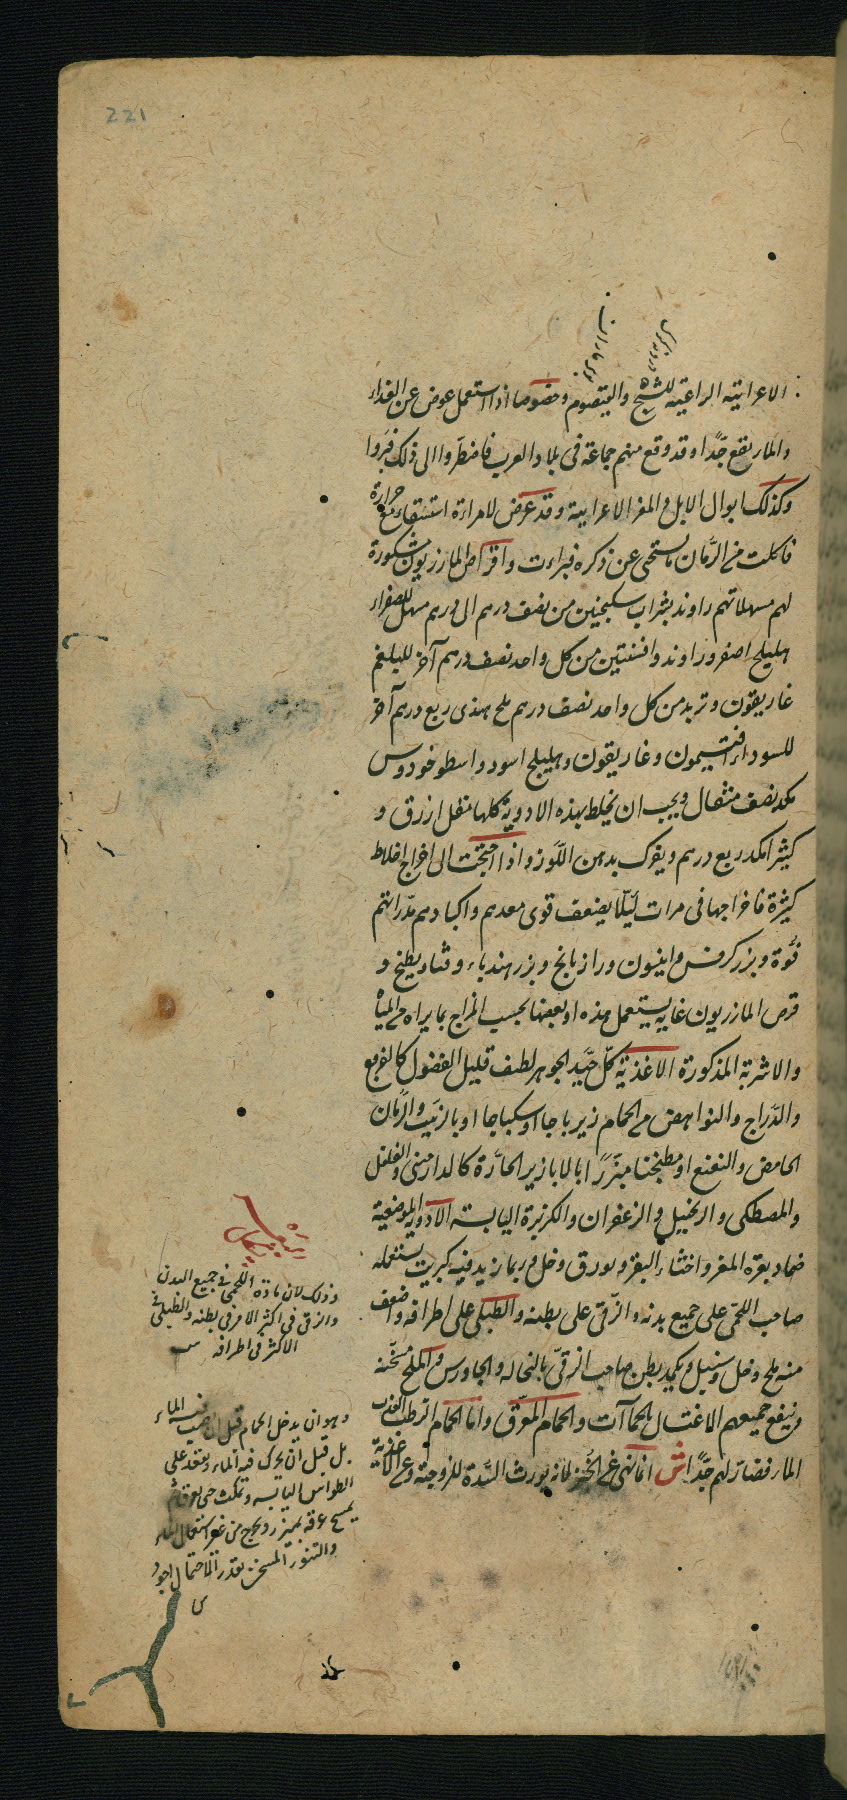 221
الاعرابية الراعية للشيح والقيصوم وخصوصا اذا استعمل عوض عن الغذاء
والماء ينفع جدًّا وقد وقع منهم جماعة فى بلاد العرب فاضطروا الى ذلك فبروا
وكذلك ابوال الابل والمعز الاعرابية وقد عرض لامراءة استسقاء مع حرارة
فاكلت من الرّمان ما يستحى عن ذكره فبراءت واقراص المازريون مشكورة
لهم مسهلاتهم راوند بشراب سكنجبين من نصف درهم الى درهم مسهل للصفراء
هليلج اصفر وراوند وافسنتين من كل واحد نصف درهم آخر للبلغم
غاريقون وتربد من كل واحد نصف درهم ملح هندى ربع درهم آخر
للسوداء افتيمون وغاريقون وهليلج اسود واسطوخودوس
مكد نصف مثقال ويجب ان يخلط بهذه الادوية كلها مقل ازرق و
كثيرا مكد ربع درهم ويفرك بدهن اللّوز واذا احتجت الى اخراج اخلاط
كثيرة فاخراجها فى مرات لئلّا يضعف قوى معدهم واكبادهم مدّراتهم
فُوّة وبزر كرفس وانيسون ورازيانج وبزر هندباء وقثاء وبطيخ و
قرص المازريون غاية يستعمل هذه او بعضها بحسب المزاج بما يراه من المياه
والاشربة المذكورة الاغذية كلّ جيّد الجوهر لطيف قليل الفضول كالفروج
والدّراج والنواهض من الحمام زيرباجا او سكباجا او بالزبيب والرّمان
الحامض والنعنع او مطبخنا مبزّرًا بالابازير الحارّة كالدارصينى والفلفل
والمصطكى والزنجبيل والزعفران والكزبرة اليابسة الادوية الموضعية
ضماد بعرة المعز واخثاء البقر وبورق وخل وربما زيد فيه كبريت يستعمله
صاحب اللحمّى على جميع بدنه والزّقى على بطنه والطبلى على اطرافه واضعف
منه ملح وخل وسنبل ويكمد بطن صاحب الزقىّ بالنخالة والجاورس والملح مسخّنة
وينفع جميعهم الاغتسال بالحماآت والحمام المعرّق واما الحمام الرطب العذب
الماء فضار لهم جدًّا ش انما نهى عن الخبز لانه يورث السّدة للزوجته وعن الاغذية
وذلك لان مادة اللحمى فى جميع البدن
والزقى فى اكثر الامر فى بطنه والطبلى فى
الاكثر فى اطرافه
وهو ان يدخل الحمام قبل ان يصب فيه الماء
بل قبل ان يحرك فيه الماء ويقعد على
الطوابق اليابسة ويمكث حتى يعرق ثم
يمسح عرقه بميزر ويخرج من غير استعمال الماء
والتنور المسخن بقدر الاحتمال اجود